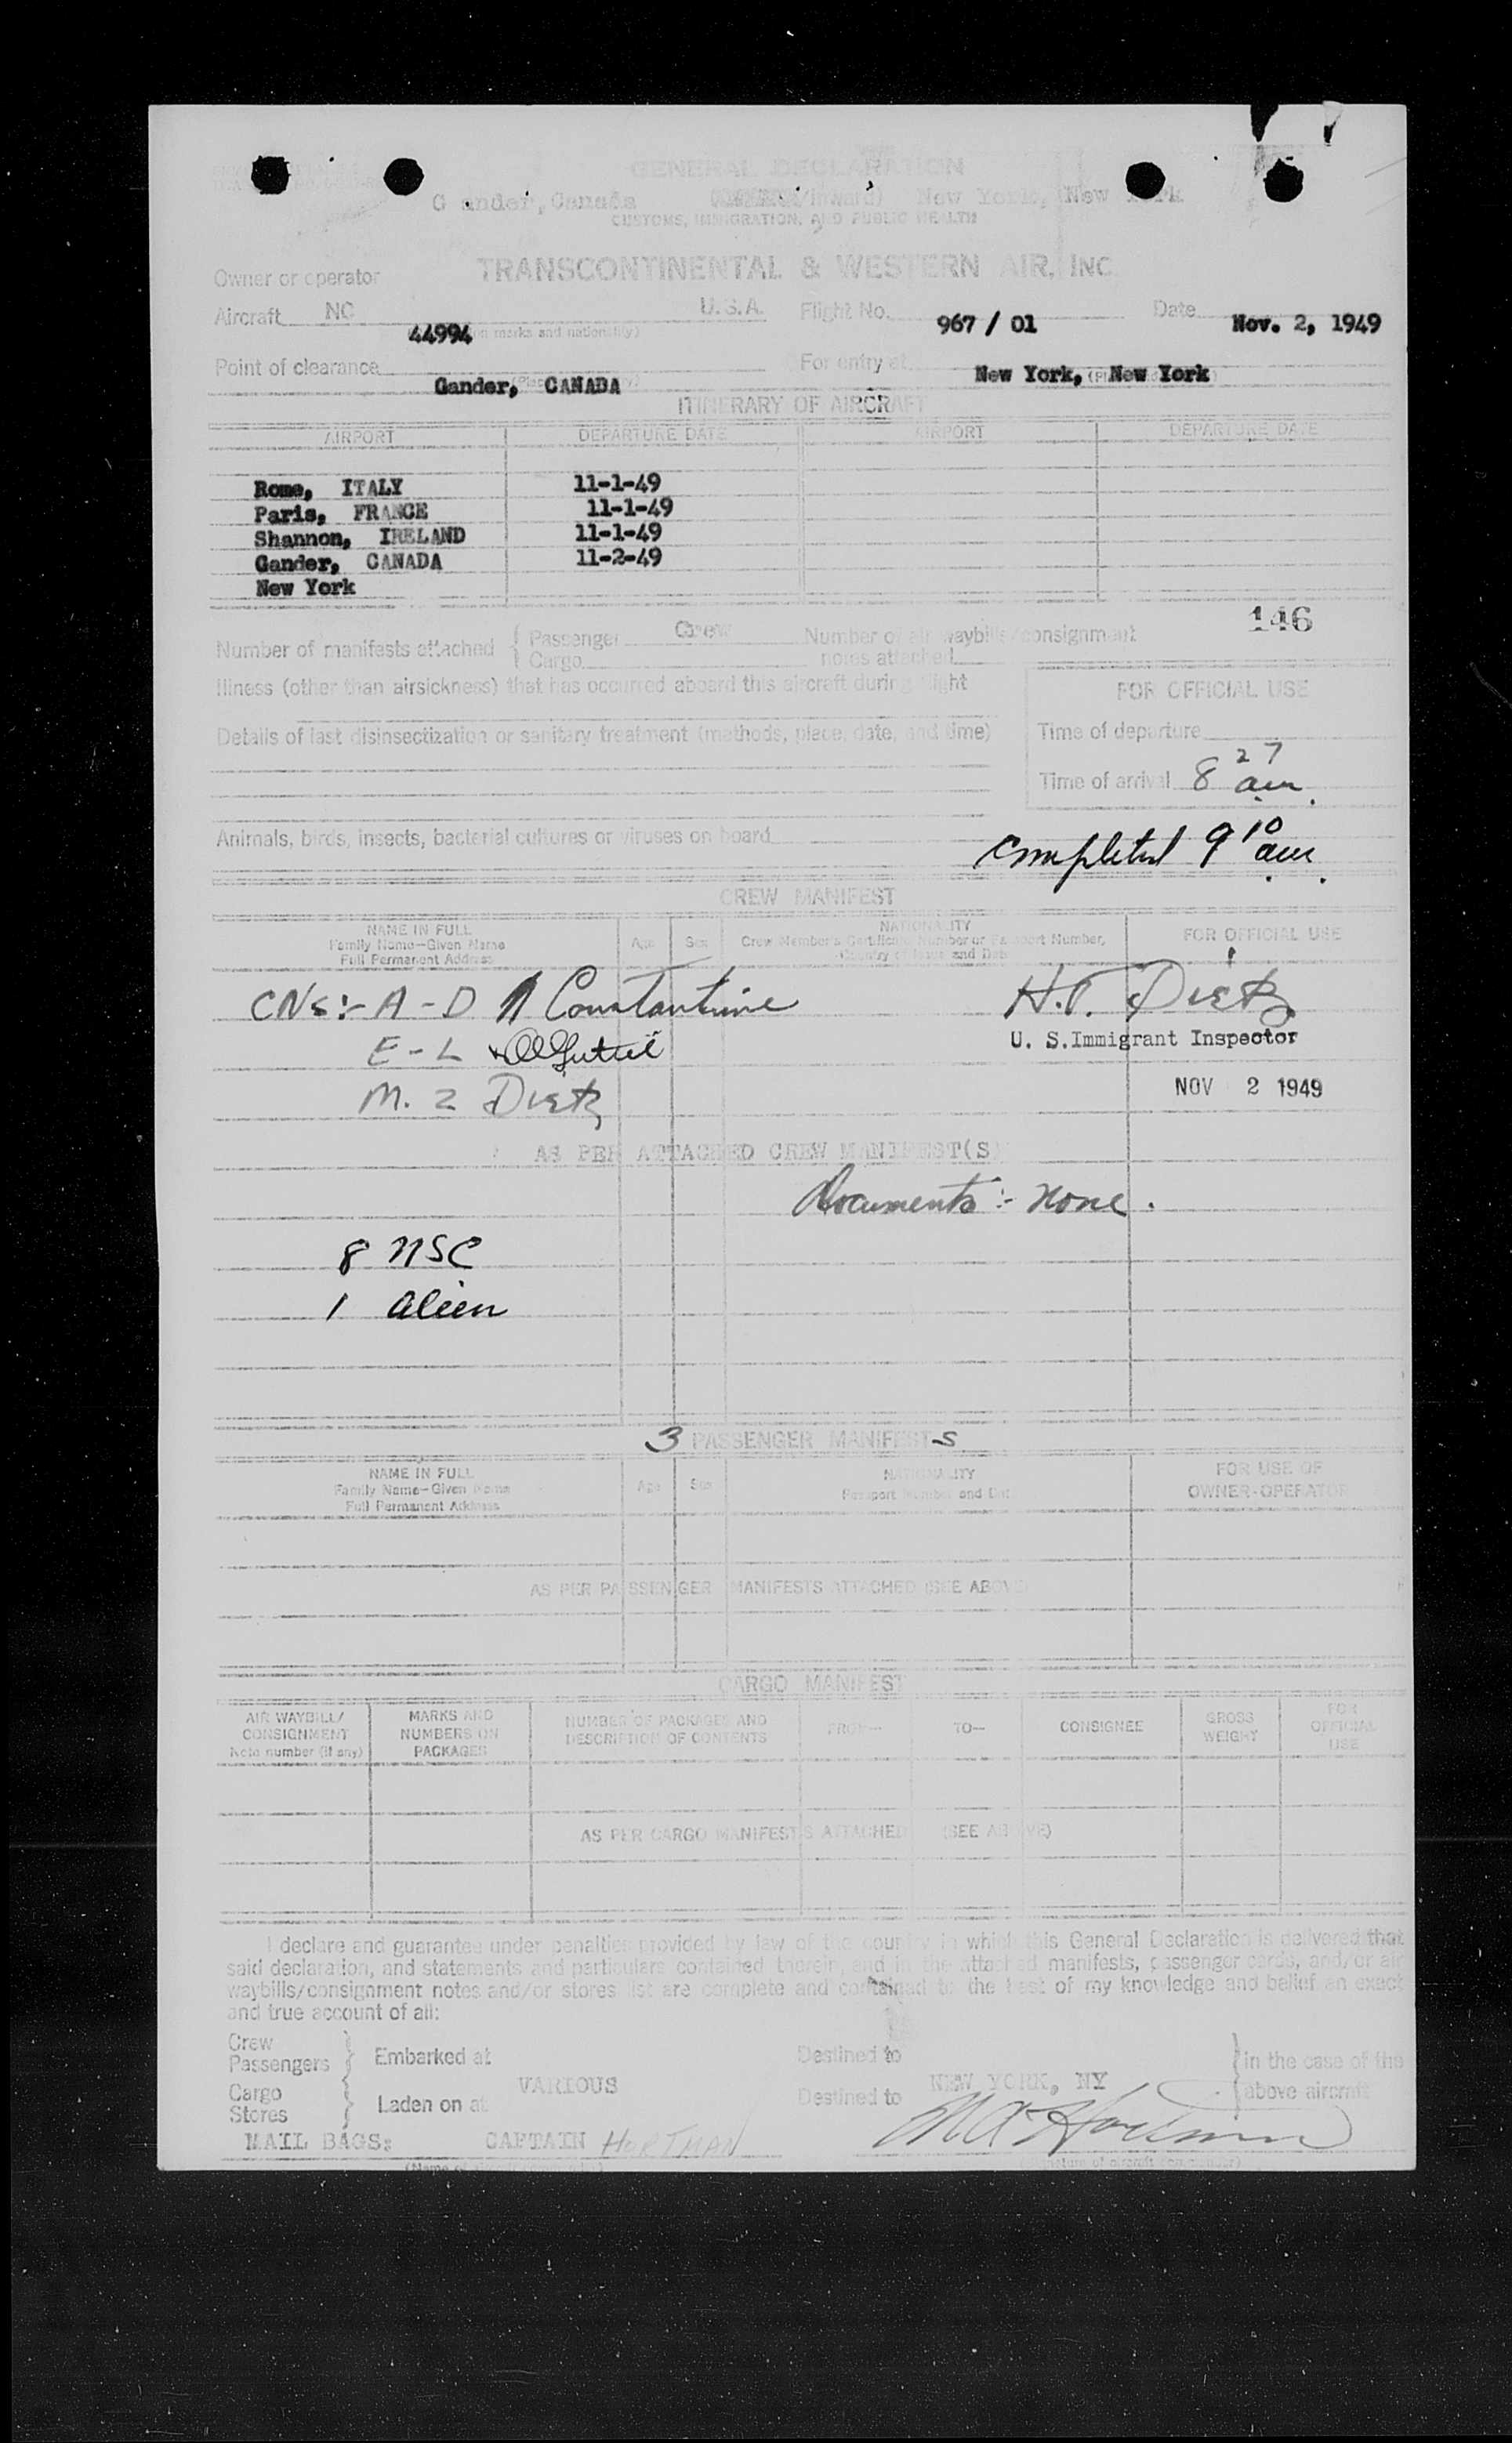 GENERAL DECLARATION
G ander, Canada (Outward/Inward) New York, New York
CUSTOMS, IMMIGRATION, AND PUBLIC HEALTH
Owner or operator TRANSCONTINENTAL & WESTERN AIR, INC.
Aircraft NC 44994 U.S.A. Flight No. 967 / 01 Date Nov. 2, 1949
Point of clearance Gander, CANADA For entry at New York, New York
ITINERARY OF AIRCRAFT
AIRPORT DEPARTURE DATE AIRPORT DEPARTURE DATE
Rome, ITALY 11-1-49
Paris, FRANCE 11-1-49
Shannon, IRELAND 11-1-49
Gander, CANADA 11-2-49
New York
146
Number of manifests attached { Passenger Crew Number of air waybills/consignment
Cargo notes attached
Illness (other than airsickness) that has occurred aboard this aircraft during flight
FOR OFFICIAL USE
Details of last disinsectization or sanitary treatment (methods, place, date, and time)
Time of departure
Time of arrival 8 27 am.
Animals, birds, insects, bacterial cultures or viruses on board
Completed 9 10 am.
CREW MANIFEST
NAME IN FULL
Family Name—Given Name
Full Permanent Address
Age Sex
NATIONALITY
Crew Member's Certificate Number or Passport Number,
Country of Issue and Date
FOR OFFICIAL USE
CNs:- A - D Constantine
H.T. Dietz
E - L
U. S. Immigrant Inspector
M. Z Dietz
NOV 2 1949
AS PER ATTACHED CREW MANIFEST(S)
Documents :- None.
8 USC
1 alien
3 PASSENGER MANIFESTS
NAME IN FULL
Family Name—Given Name
Full Permanent Address
Age Sex
NATIONALITY
Passport Number and Date
FOR USE OF
OWNER-OPERATOR
AS PER PASSENGER MANIFESTS ATTACHED (SEE ABOVE)
CARGO MANIFEST
AIR WAYBILL/
CONSIGNMENT
Note number (if any)
MARKS AND
NUMBERS ON
PACKAGES
NUMBER OF PACKAGES AND
DESCRIPTION OF CONTENTS
FROM—
TO—
CONSIGNEE
GROSS
WEIGHT
FOR
OFFICIAL
USE
AS PER CARGO MANIFESTS ATTACHED (SEE ABOVE)
I declare and guarantee under penalties provided by law of the country in which this General Declaration is delivered that
said declaration, and statements and particulars contained therein, and in the attached manifests, passenger cards, and/or air
waybills/consignment notes and/or stores list are complete and contained to the best of my knowledge and belief an exact
and true account of all:
Crew
Passengers } Embarked at Destined to } in the case of the
VARIOUS NEW YORK, NY
Cargo
Stores } Laden on at Destined to above aircraft
MAIL BAGS: CAPTAIN HORTMAN